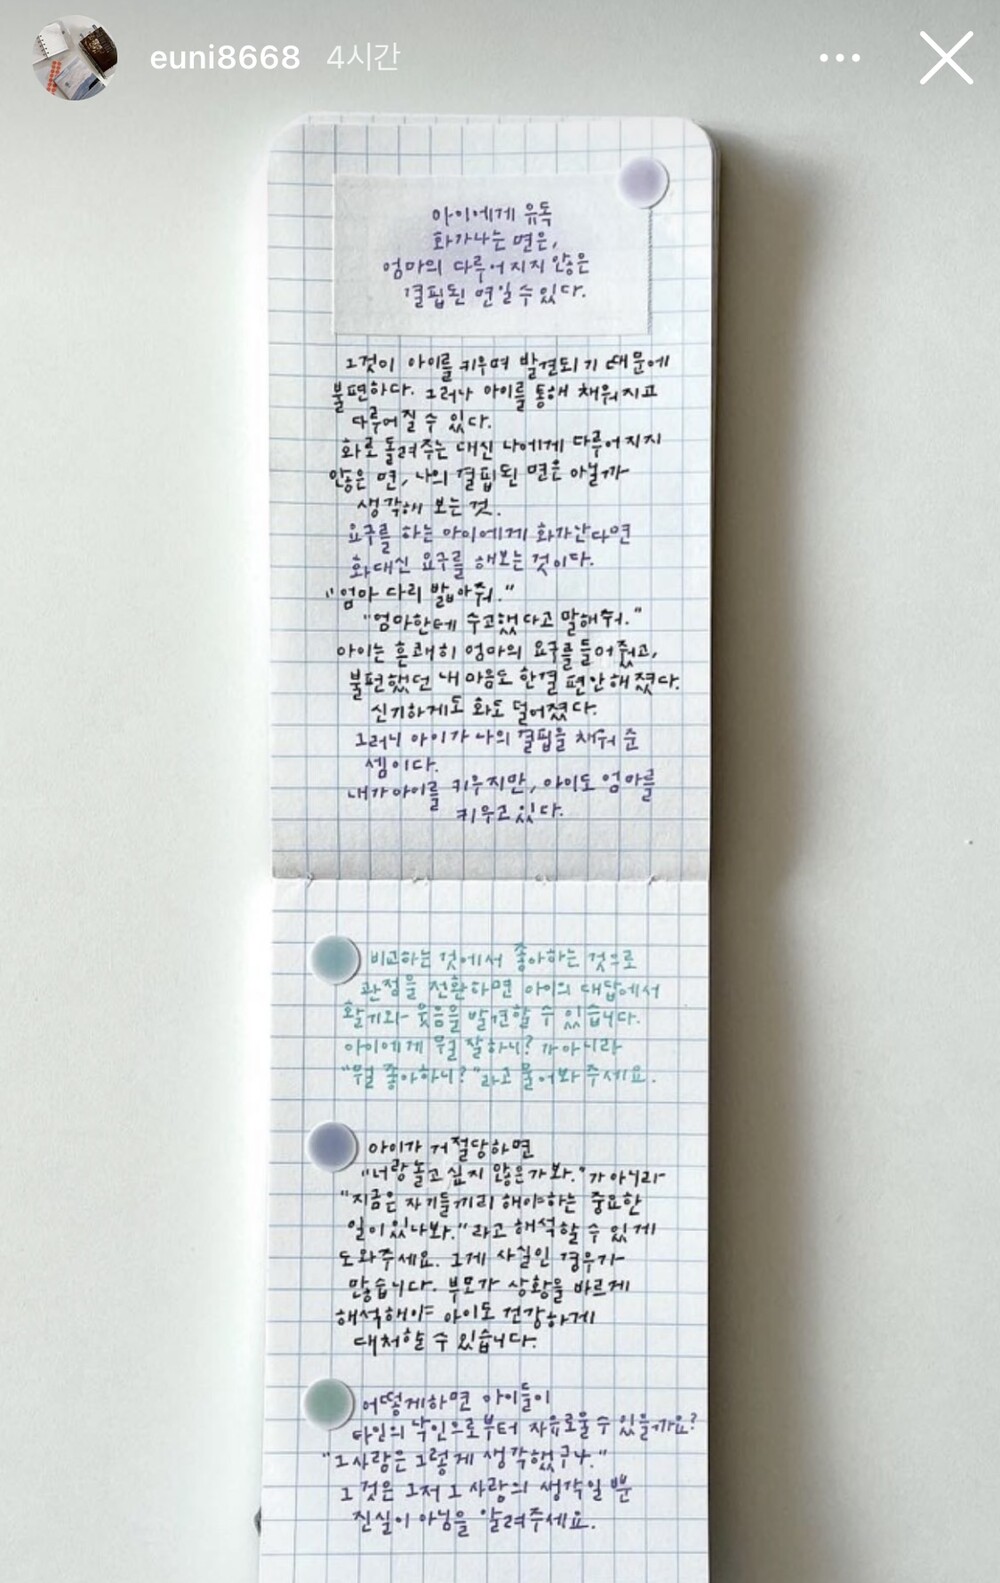 euni8668 4시간
아이에게 유독
화가나는 면은,
엄마의 다루어지지 않은
결핍된 면일 수 있다.
그것이 아이를 키우며 발견되기 때문에
불편하다. 그러나 아이를 통해 채워지고
다루어질 수 있다.
화로 돌려주는 대신 나에게 다루어지지
않은 면, 나의 결핍된 면은 아닐까
생각해 보는 것.
요구를 하는 아이에게 화가난다면
화대신 요구를 해보는 것이다.
"엄마 다리 밟아줘."
"엄마한테 수고했다고 말해줘."
아이는 흔쾌히 엄마의 요구를 들어줬고,
불편했던 내 마음도 한결 편안해졌다.
신기하게도 화도 덜어졌다.
그러니 아이가 나의 결핍을 채워 준
셈이다.
내가 아이를 키우지만, 아이도 엄마를
키우고 있다.
비교하는 것에서 좋아하는 것으로
관점을 전환하면 아이의 대답에서
활기와 웃음을 발견할 수 있습니다.
아이에게 뭘 잘하니? 가 아니라
"뭘 좋아하니?"라고 물어봐 주세요.
아이가 거절당하면
"너랑 놀고 싶지 않은가봐."가 아니라
"지금은 자기들끼리 해야하는 중요한
일이 있나봐."라고 해석할 수 있게
도와주세요. 그게 사실인 경우가
많습니다. 부모가 상황을 바르게
해석해야 아이도 건강하게
대처할 수 있습니다.
어떻게하면 아이들이
타인의 낙인으로부터 자유로울 수 있을까요?
"그사람은 그렇게 생각했구나."
그것은 그저 그 사람의 생각일 뿐
진실이 아님을 알려주세요.